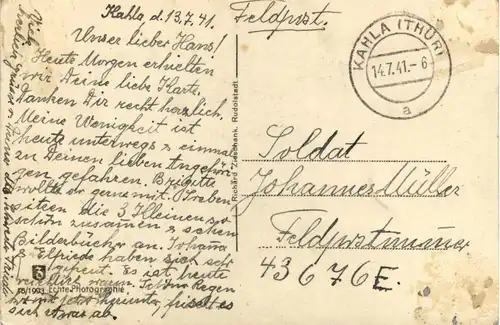 Kahla, d. 13.7.41.
Unser lieber Hans!
Heute Morgen erhielten
wir Deine liebe Karte.
Danken Dir recht herzlich.
Meine Wenigkeit ist
heute unterwegs & einmal
zu Deinen lieben Angehö-
rigen gefahren. Brigitte
wollte gerne mit. Droben
sitzen die 3 Kleinen so
schön zusammen & sehen
Bilderbücher an. Johanna
& Elfriede haben sich sehr
gefreut. Es ist heute
reichlich warm.
Regen
jetzt herunter,
sich etwas ab.
Viele
Feldpost.
KAHLA (THÜR)
14.7.41.-6
a
Soldat
Johannes Müller
Feldpostnummer
43676E.
Richard Zieschank, Rudolstadt
Echte Photographie